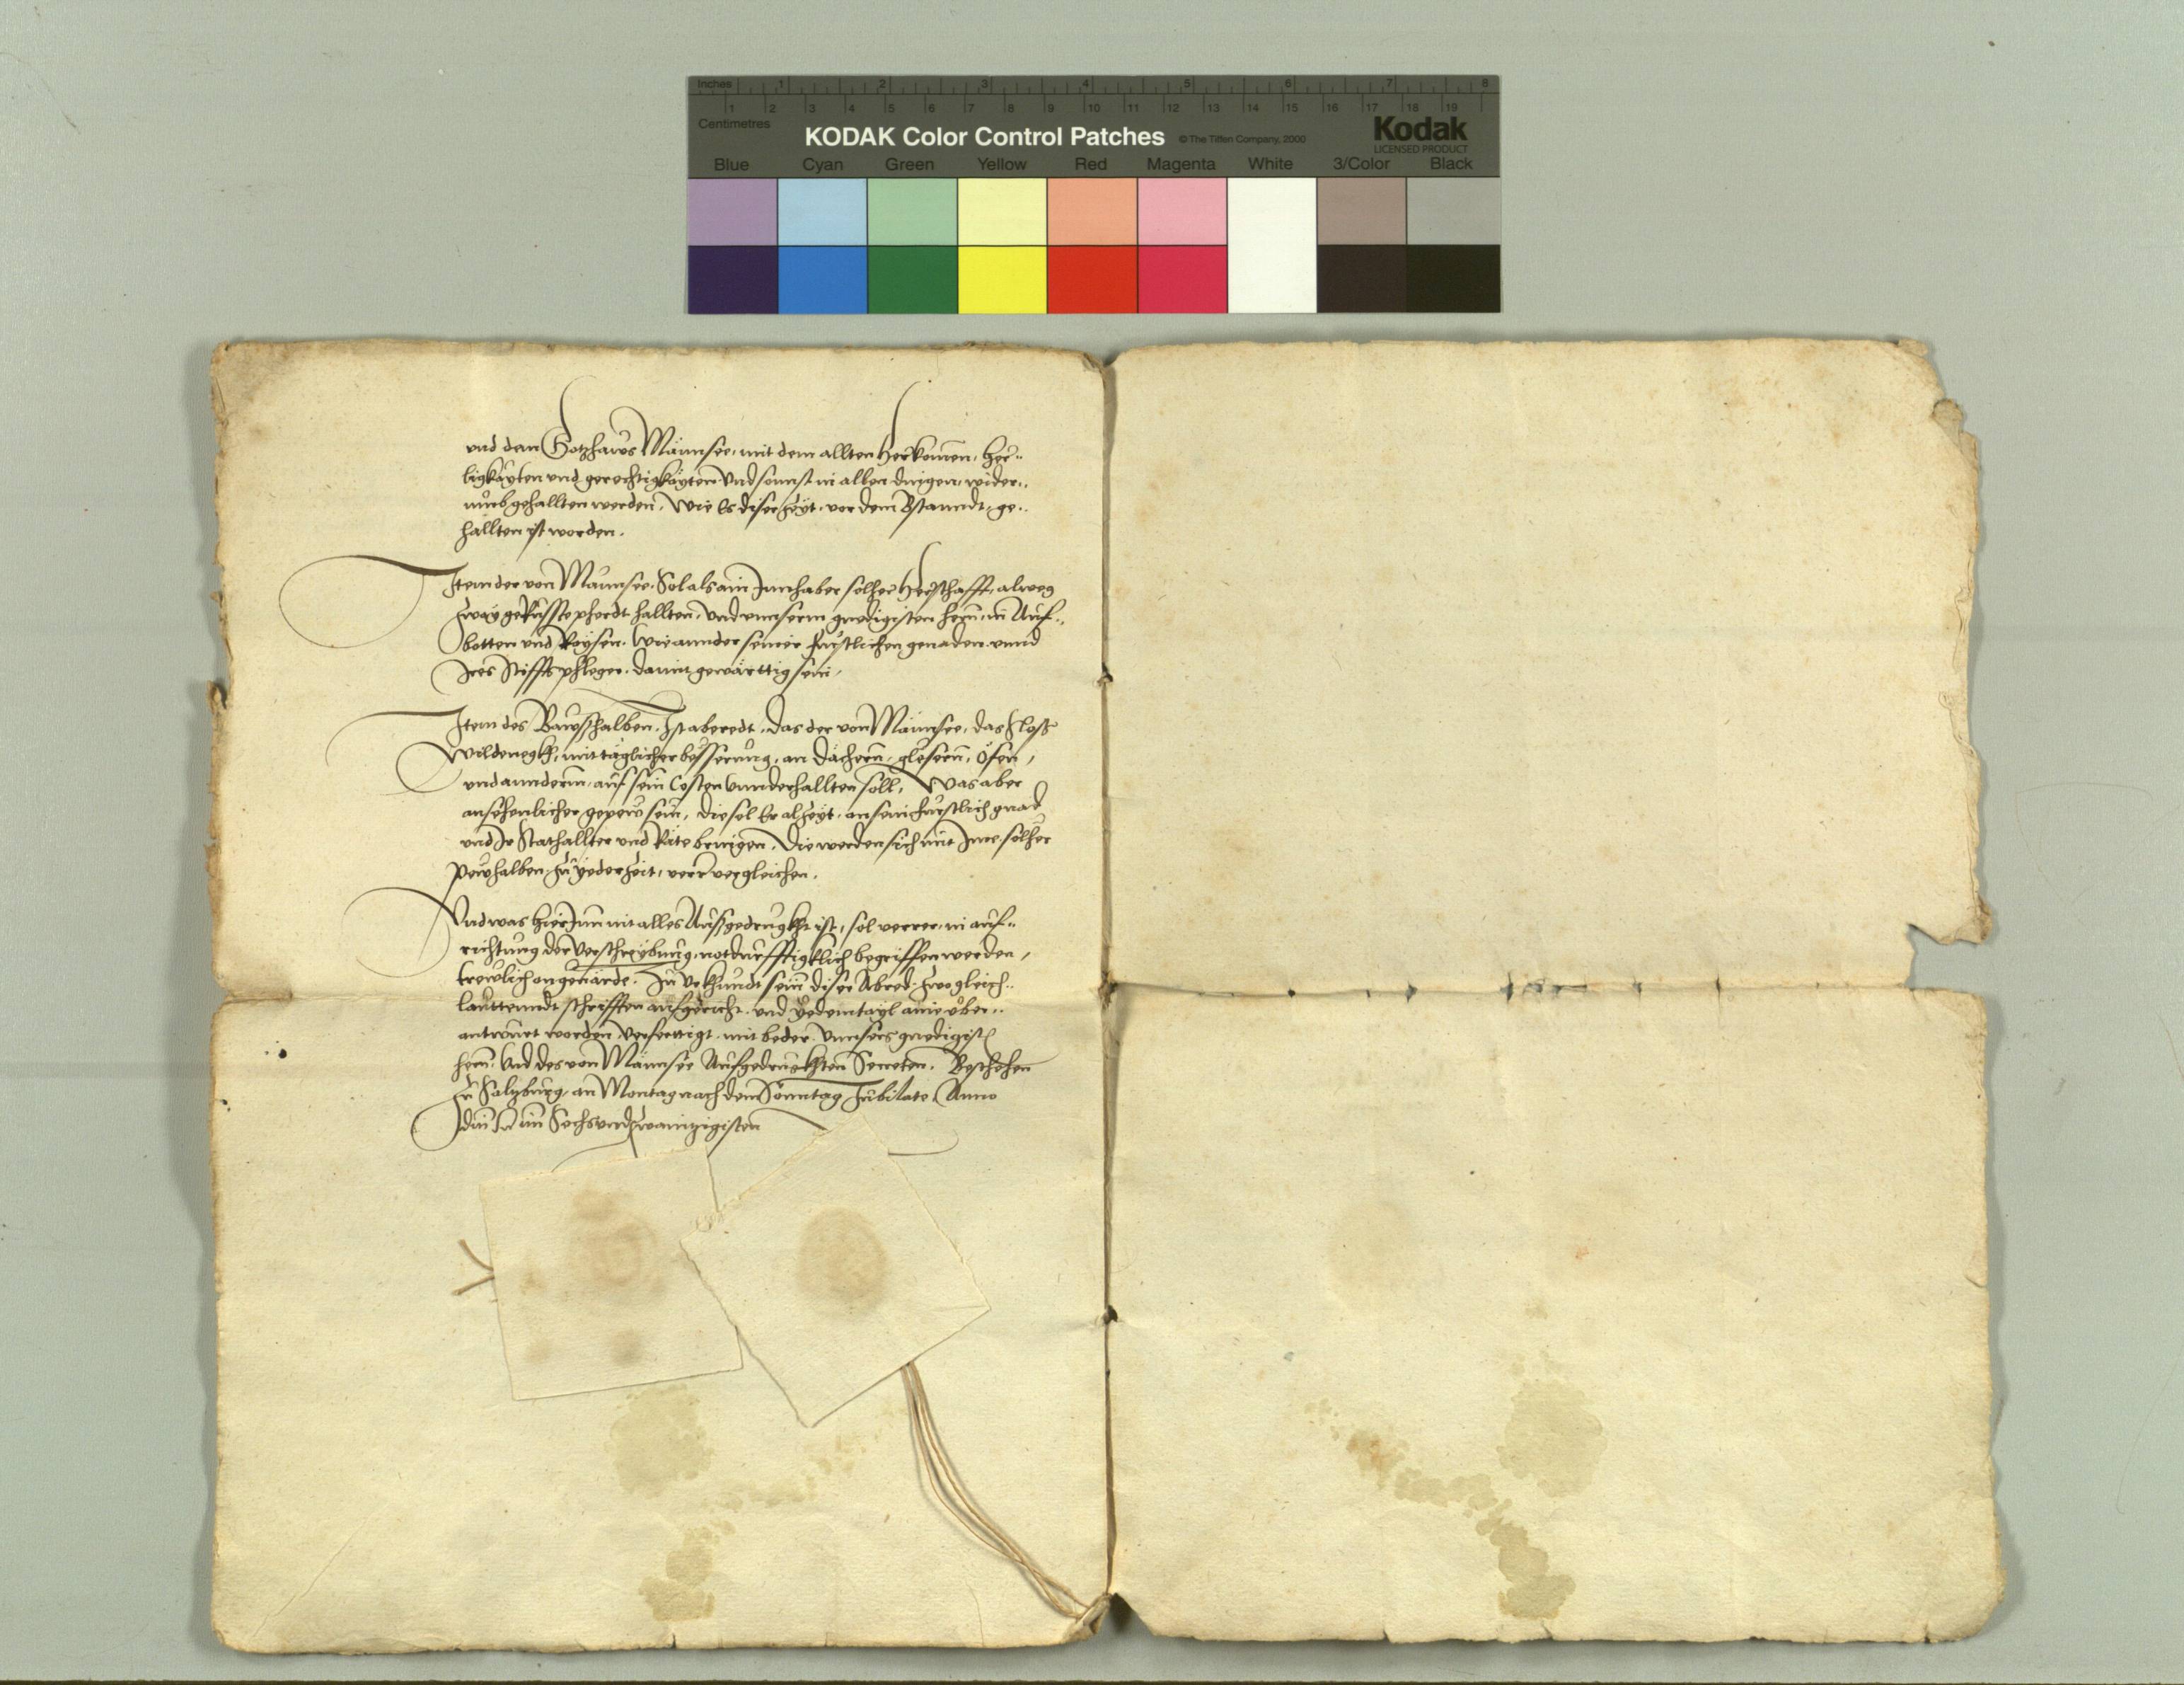 Inches 1 2 3 4 5 6 7 8
1 2 3 4 5 6 7 8 9 10 11 12 13 14 15 16 17 18 19
Centimetres
KODAK Color Control Patches © The Tiffen Company, 2000 Kodak
LICENSED PRODUCT
Blue Cyan Green Yellow Red Magenta White 3/Color Black
vnd dem Gotzhaws Männsee, mit dem allten Herkomen, Her..
ligkayten vnd gerechtigkayten Vnd sonnst in allen dingen, wider..
vmb gehallten werden, Wie Es diser Zeyt, vor dem Bstanndt, ge..
hallten ist worden.
Item der von Männsee, Sol als ain Innhaber solher Herschafft, alweg
zway geRüsste pherdt hallten, vnd vnnserm gnedigisten herrn, in Auf..
botten vnd Raysen, Wie annder seiner furstlichen genaden vnnd
Ires Stiffts phleger, damit gewärttig sein,
Item des Bawsshalben, Ist aberedt, das der von Männsee, das Sloss
Wildenegkh, mit täglicher besserung, an dächern, glesern, Öfen,
vnd annderm, auf sein Cossten vnnderhallten soll, Was aber
ansehenlicher gepew sein, die sol Er alzeyt, an sein furstlich gnad
vnd Ir Stathallter vnd Räte bringen, die werden sich mit Ime solher
Pewhalben, zu yeder zeit, verrer vergleichen.
Vnd was hierInn nit alles Aussgedrugkht ist, sol verrer, in auf..
richtung der Verschreybung, notdurfftigklich begriffen werden,
trewlich on geuärde. Zu Vrkhundt sein diser Abred, zwo gleich..
lauttenndt schrifften aufgericht, vnd yedem tayl aine vber..
antwurt worden, Verferttigt, mit beder, Vnnsers gnedigist
herrn, Vnd des von Männsee Aufgedruckhten Secreten. Beschehen
zu Salzburg, an Montag nach dem Sonntag Jubilate, Anno
dni im Sechsvndzwainzigisten